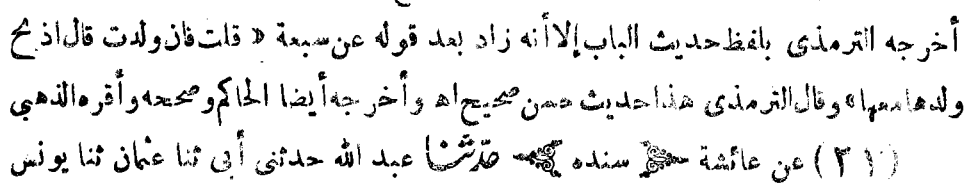 أخرجه الترمذى بلفظ حديث الباب إلا أنه زاد بعد قوله عن سبعة « قلت فان ولدت قال اذبح
ولدها معها » وقال الترمذى هذا حديث حسن صحيح اه وأخرجه أيضا الحاكم وصححه وأقره الذهبى
(٢١) عن عائشة ﴿ سنده ﴾ حدثنا عبد الله حدثنى أبى ثنا عثمان ثنا يونس